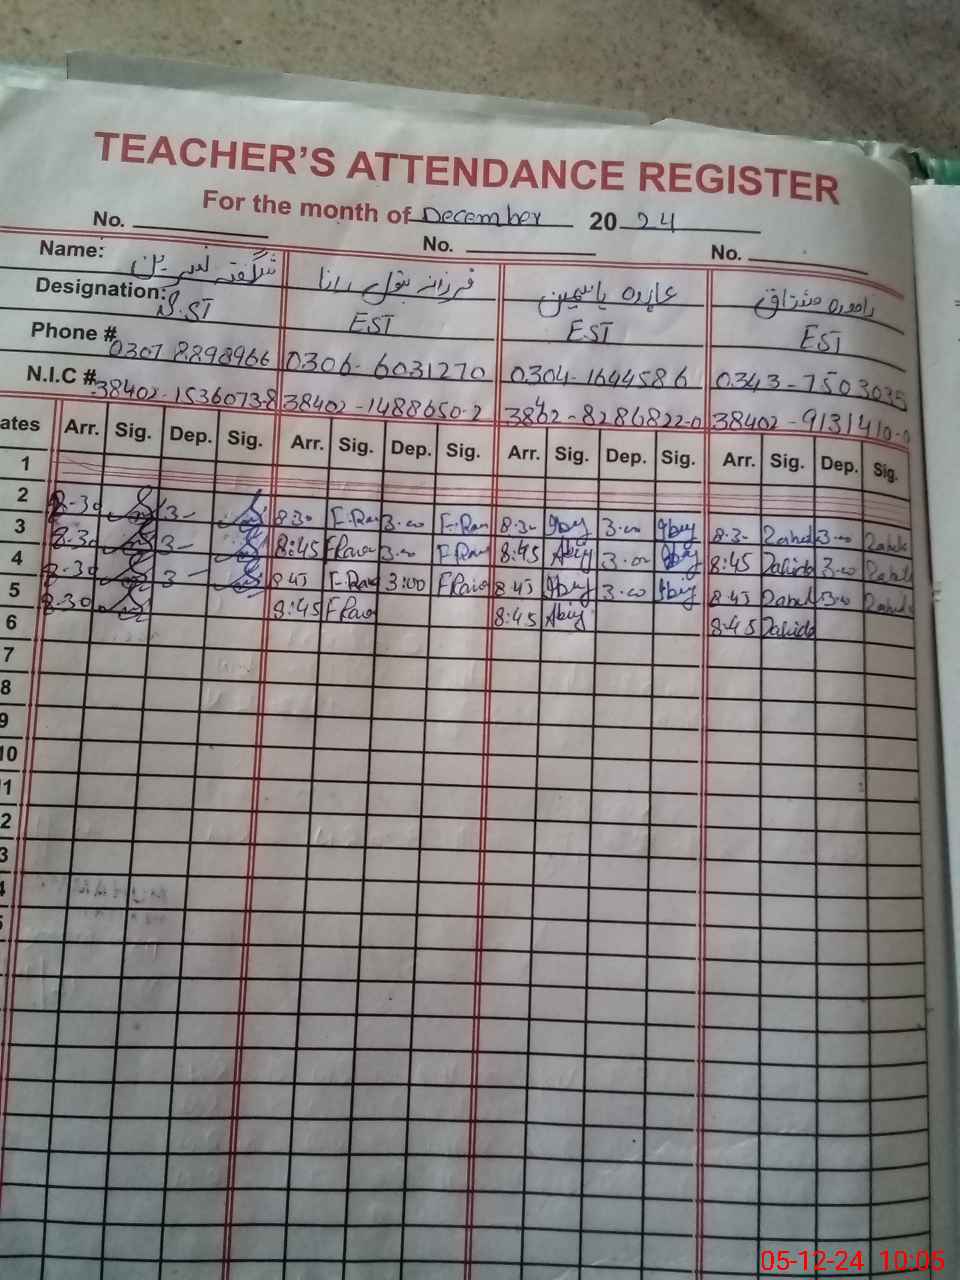 TEACHER'S ATTENDANCE REGISTER
For the month of December 2024
No. No. No.
Name: شگفتہ نسرین فرزانہ بتول رانا عابدہ یاسمین زاہدہ مشتاق
Designation: S.ST EST EST EST
Phone # 0307 8898966 0306-6031270 0304-1644586 0343-7503035
N.I.C # 38402-1536073-8 38402-1488650-2 38402-8286822-0 38402-9131410-0
ates Arr. Sig. Dep. Sig. Arr. Sig. Dep. Sig. Arr. Sig. Dep. Sig. Arr. Sig. Dep. Sig.
1
2 8-30 3- 8:30 3:00 8:30 3:00 8:30 3:00
3 8-30 3- 8:45 3:00 8:45 3:00 8:45 Zahida 3:00
4 8-30 3- 8:45 3:00 8:45 3:00 8:45 3:00
5 8-30 8:45 8:45 8:45 Zahida
6
7
8
9
10
1
2
3
4
5
05-12-24 10:05